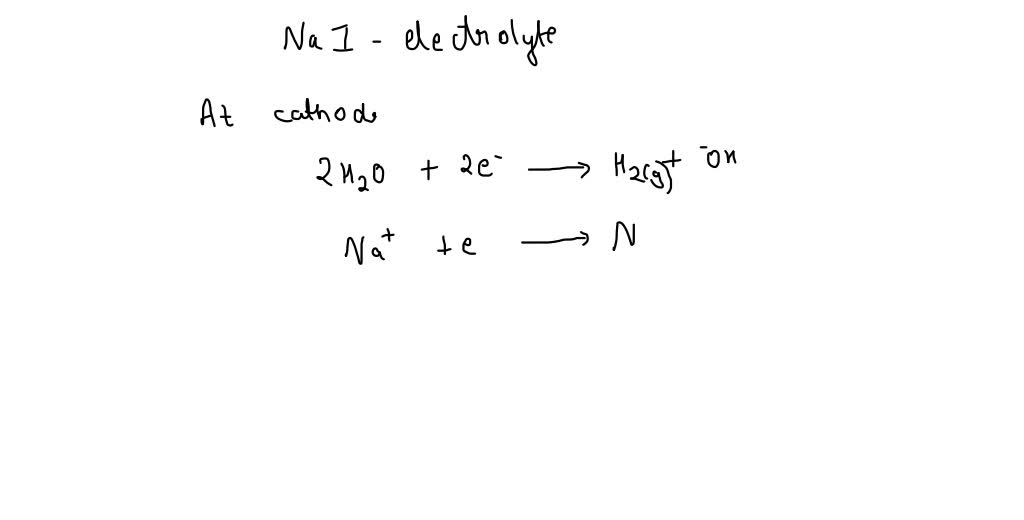 NaI - electrolyte
At cathode
2H₂O + 2e⁻ ⟶ H₂(g) + ⁻OH
Na⁺ + e ⟶ N